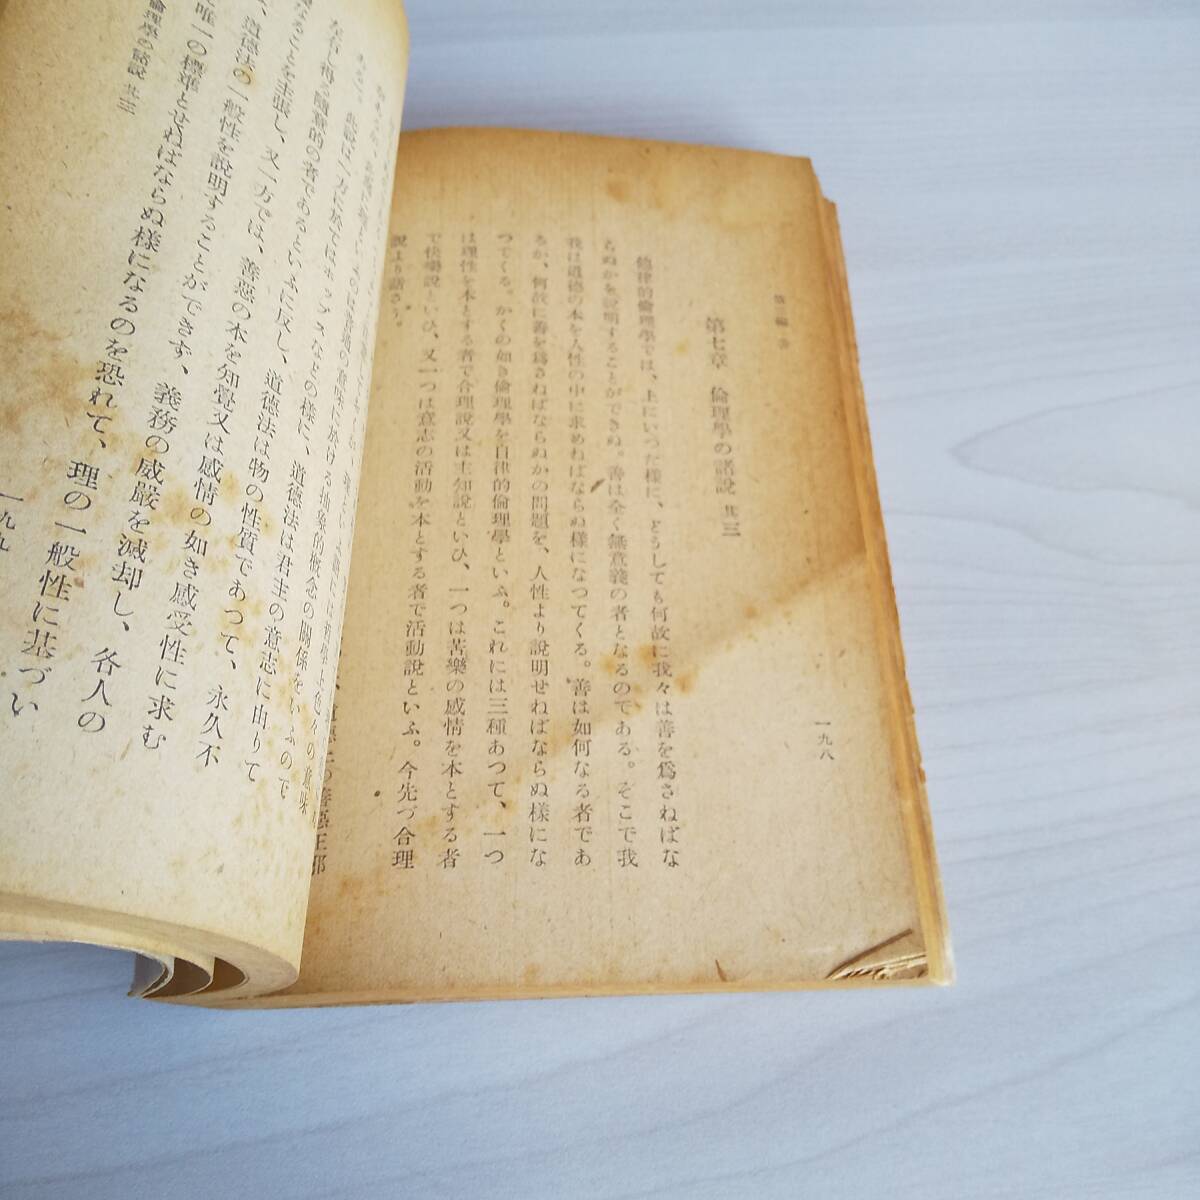 第三編 善
一九八
第七章 倫理學の諸說 其三
他律的倫理學では、上にいつた樣に、どうしても何故に我々は善を爲さねばな
らぬかを說明することができぬ。善は全く無意義の者となるのである。そこで我
我は道德の本を人性の中に求めねばならぬ樣になつてくる。善は如何なる者であ
るか、何故に善を爲さねばならぬかの問題を、人性より說明せねばならぬ樣にな
つてくる。かくの如き倫理學を自律的倫理學といふ。これには三種あつて、一つ
は理性を本とする者で合理說又は主知說といひ、一つは苦樂の感情を本とする者
で快樂說といひ、又一つは意志の活動を本とする者で活動說といふ。今先づ合理
說より話さう。
の善惡正邪
普通の意味に於ける抽象的槪念の關係をいふので
ある。此說は一方に於てはホッブスなどの樣に、道德法は君主の意志に由りて
左右し得る隨意的の者であるといふに反し、道德法は物の性質であつて、永久不
なることを主張し、又一方では、善惡の本を知覺又は感情の如き感受性に求む
、道德法の一般性を說明することができず、義務の威嚴を滅却し、各人の
唯一の標準とせねばならぬ樣になるのを恐れて、理の一般性に基づい
倫理學の諸說 其三
一九九